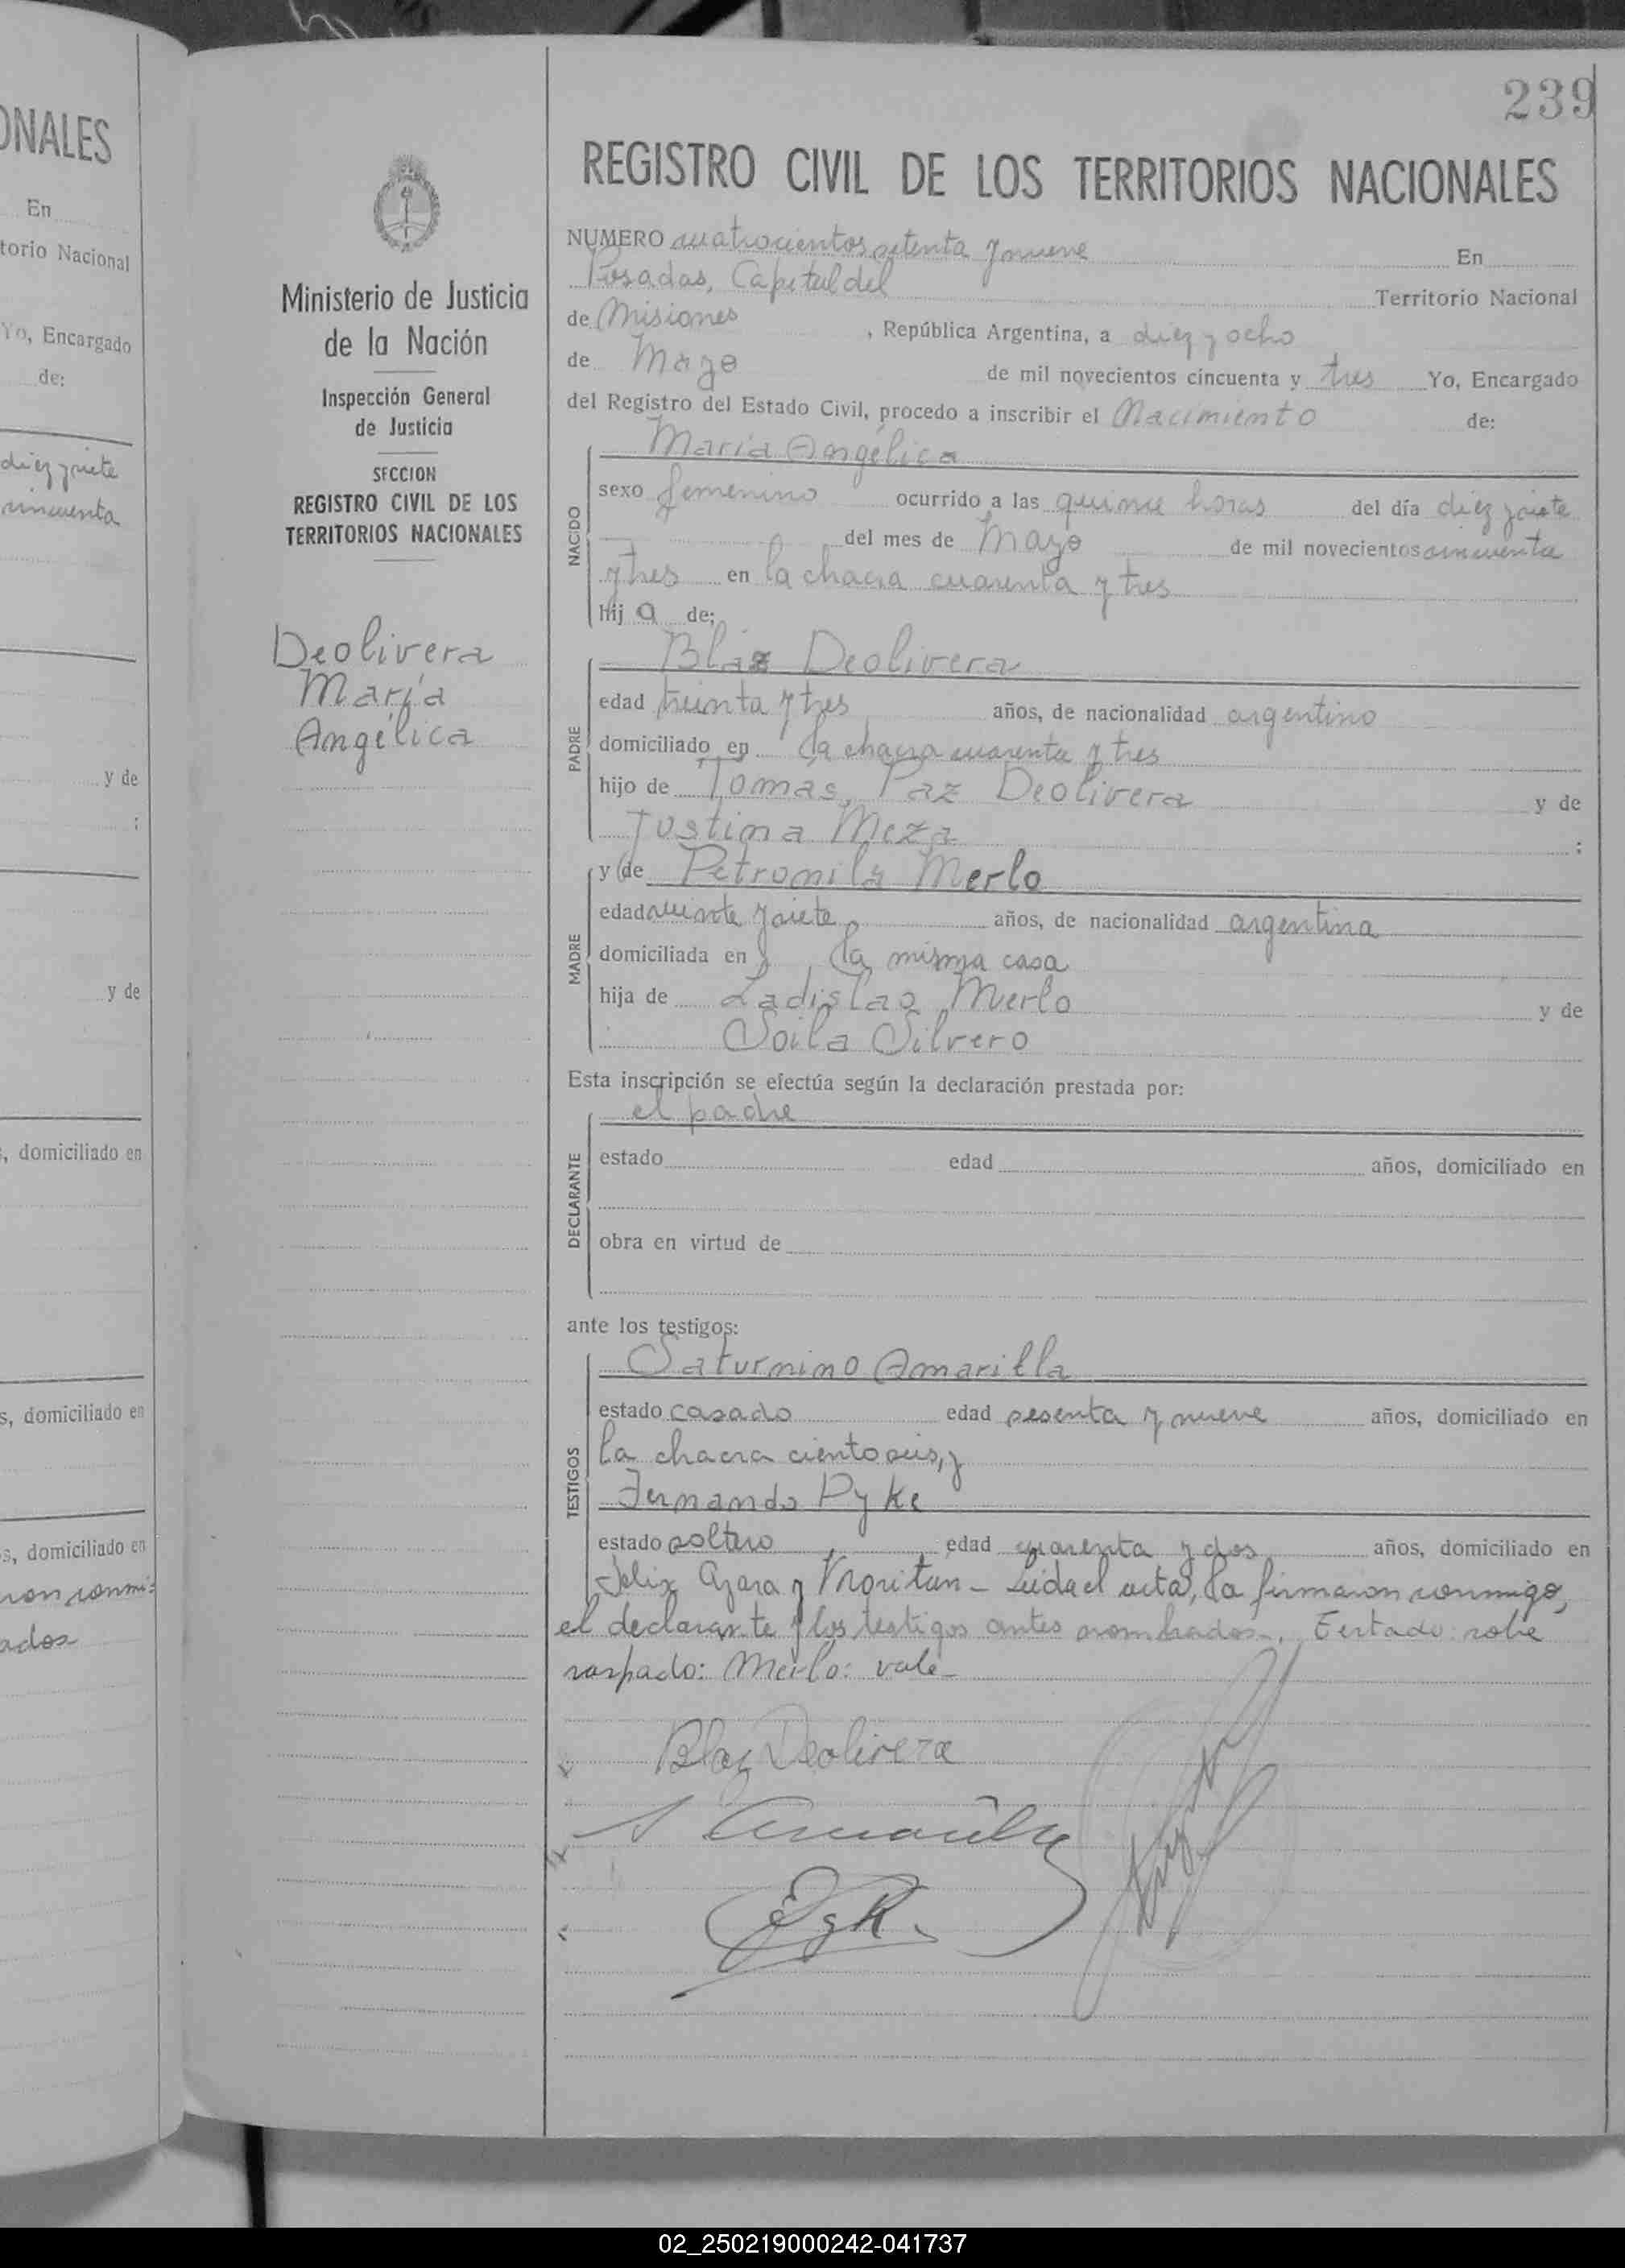 ONALES
En
torio Nacional
Yo, Encargado
de:
diez y siete
cincuenta
y de
;
y de
s, domiciliado en
s, domiciliado en
s, domiciliado en
ron conmi-
ados
239
Ministerio de Justicia
de la Nación
Inspección General
de Justicia
SECCION
REGISTRO CIVIL DE LOS
TERRITORIOS NACIONALES
Deolivera
María
Angélica
REGISTRO CIVIL DE LOS TERRITORIOS NACIONALES
NUMERO cuatrocientos setenta y nueve En
Posadas, Capital del Territorio Nacional
de Misiones, República Argentina, a diez y ocho
de Mayo de mil novecientos cincuenta y tres Yo, Encargado
del Registro del Estado Civil, procedo a inscribir el Nacimiento de:
María Angélica
NACIDO
sexo femenino ocurrido a las quince horas del día diez y siete
del mes de Mayo de mil novecientos cincuenta
y tres en la chacra cuarenta y tres
Hija de:
Blaz Deolivera
PADRE
edad treinta y tres años, de nacionalidad argentino
domiciliado en la chacra cuarenta y tres
hijo de Tomas Paz Deolivera y de
Justina Meza ;
y de Petronila Merlo
MADRE
edad veinte y siete años, de nacionalidad argentina
domiciliada en la misma casa
hija de Ladislao Merlo y de
Soila Silvero
Esta inscripción se efectúa según la declaración prestada por:
el padre
DECLARANTE
estado edad años, domiciliado en
obra en virtud de
ante los testigos:
Saturnino Amarilla
TESTIGOS
estado casado edad sesenta y nueve años, domiciliado en
la chacra ciento seis, y
Fernando Pyke
estado soltero edad cuarenta y dos años, domiciliado en
Felix Azara y Tucuman - Leida el acta, la firmaron conmigo,
el declarante y los testigos antes nombrados. Testado sobre
raspado: Merlo: vale -
Blaz Deolivera
S Amarilla
02_250219000242-041737